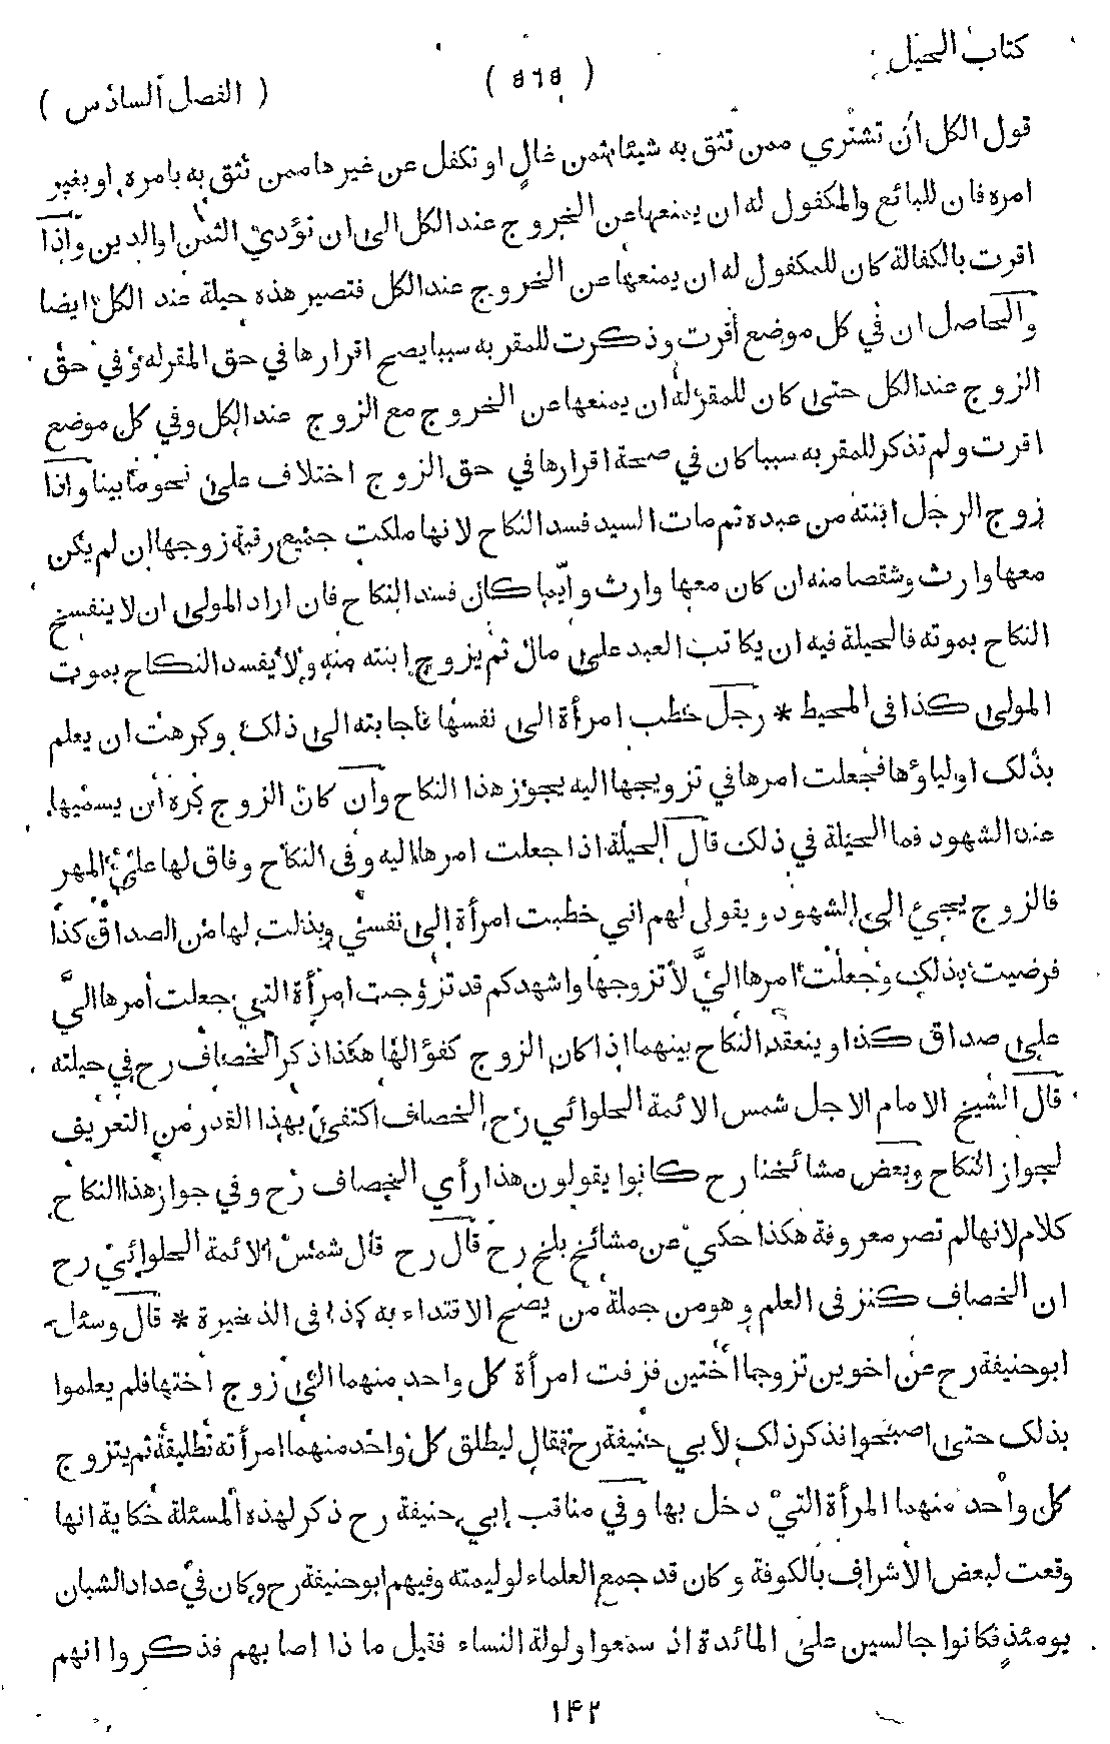 كتاب الحيل
( ٥٦٥ )
( الفصل السادس )
قول الكل ان تشتري ممن تثق به شيئا بثمن غال او تكفل عن غيرها ممن تثق به بامره او بغير
امره فان للبائع والمكفول له ان يمنعها عن الخروج عند الكل الى ان تؤدي الثمن او الدين واذا
اقرت بالكفالة كان للمكفول له ان يمنعها عن الخروج عند الكل فتصير هذه حيلة عند الكل ايضا
والحاصل ان في كل موضع أقرت وذكرت للمقر به سببا يصح اقرارها في حق المقر له وفي حق
الزوج عند الكل حتى كان للمقر له ان يمنعها عن الخروج مع الزوج عند الكل وفي كل موضع
اقرت ولم تذكر للمقر به سببا كان في صحة اقرارها في حق الزوج اختلاف على نحو ما بينا واذا
زوج الرجل ابنته من عبده ثم مات السيد فسد النكاح لانها ملكت جميع رقبة زوجها ان لم يكن
معها وارث وشقصا منه ان كان معها وارث وأيما كان فسد النكاح فان اراد المولى ان لا ينفسخ
النكاح بموته فالحيلة فيه ان يكاتب العبد على مال ثم يزوج ابنته منه ولا يفسد النكاح بموت
المولى كذا فى المحيط * رجل خطب امرأة الى نفسها فاجابته الى ذلك وكرهت ان يعلم
بذلك اولياؤها فجعلت امرها في تزويجها اليه يجوز هذا النكاح وان كان الزوج كره أن يسميها
عند الشهود فما الحيلة في ذلك قال الحيلة اذا جعلت امرها اليه وفى النكاح وفاق لها على المهر
فالزوج يجيئ الى الشهود ويقول لهم اني خطبت امرأة إلى نفسي وبذلت لها من الصداق كذا
فرضيت بذلك وجعلت امرها اليَّ لأتزوجها واشهدكم قد تزوجت امرأة التي جعلت أمرها اليَّ
على صداق كذا وينعقد النكاح بينهما اذا كان الزوج كفؤا لها هكذا ذكر الخصاف رح في حيلته
قال الشيخ الامام الاجل شمس الائمة الحلوائي رح الخصاف اكتفى بهذا القدر من التعريف
لجواز النكاح وبعض مشائخنا رح كانوا يقولون هذا رأي الخصاف رح وفي جواز هذا النكاح
كلام لانها لم تصر معروفة هكذا حكي عن مشائخ بلخ رح قال رح قال شمس الائمة الحلوائي رح
ان الخصاف كنز فى العلم وهو من جملة من يصح الاقتداء به كذا فى الذخيرة * قال وسئل
ابو حنيفة رح عن اخوين تزوجا اختين فزفت امرأة كل واحد منهما الى زوج اختها فلم يعلموا
بذلك حتى اصبحوا فذكر ذلك لأبي حنيفة رح فقال ليطلق كل واحد منهما امرأته تطليقة ثم يتزوج
كل واحد منهما المرأة التي دخل بها وفي مناقب ابي حنيفة رح ذكر لهذه المسئلة حكاية انها
وقعت لبعض الأشراف بالكوفة وكان قد جمع العلماء لوليمته وفيهم ابو حنيفة رح وكان في عداد الشبان
يومئذٍ فكانوا جالسين على المائدة اذ سمعوا ولولة النساء فقيل ما ذا اصابهم فذكروا انهم
١۴٢